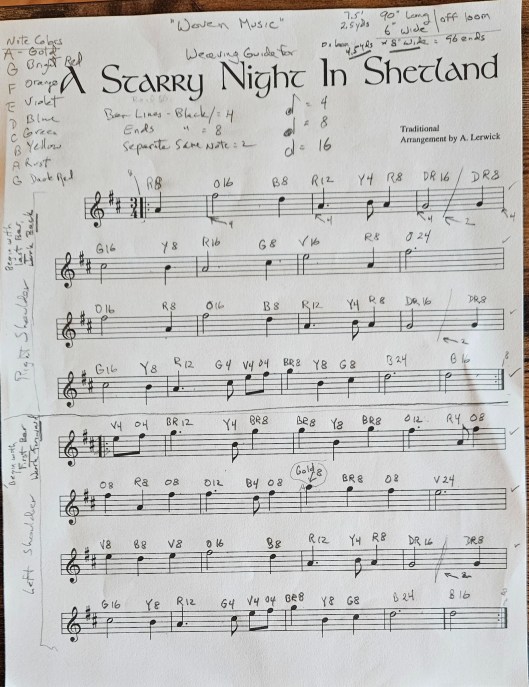 "Woven Music"
7.5'
2.5 yds
90" long / off loom
6" wide
On loom
4.5 yds x 8" wide = 96 ends
Weaving Guide for
A Starry Night In Shetland
Note Colors
A - Gold
G Bright Red
F Orange
E Violet
D Blue
C Green
B Yellow
A Rust
G Dark Red
Bar Lines - Black / = 4
Ends " = 8
Separate Same Note = 2
= 4
= 8
= 16
Traditional
Arrangement by A. Lerwick
Right Shoulder
Begin with
Last Bar
Work Back
R8 O16 B8 R12 Y4 R8 DR16 DR8
4 4 4 2
G16 Y8 R16 G8 V16 R8 O24
O16 R8 O16 B8 R12 Y4 R8 DR16 DR8
2
G16 Y8 R12 G4 V4 O4 BR8 Y8 G8 B24 B16 8
Left Shoulder
Begin with
First Bar
Work Forward
V4 O4 BR12 Y4 BR8 BR8 Y8 BR8 O12 R4 O8
O8 R8 O8 O12 B4 O8 Gold 8 BR8 O8 V24
V8 B8 V8 O16 B8 R12 Y4 R8 DR16 DR8
2
G16 Y8 R12 G4 V4 O4 BR8 Y8 G8 B24 B16